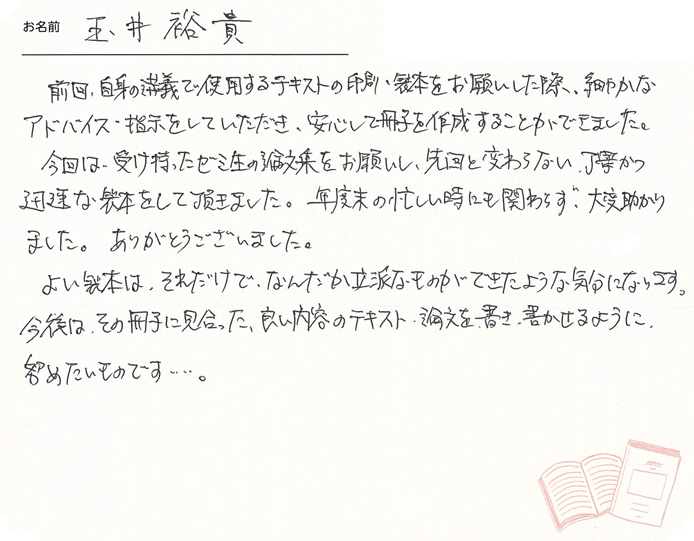 お名前 玉井裕貴
前回、自身の講義で使用するテキストの印刷・製本をお願いした際、細やかな
アドバイス・指示をしていただき、安心して冊子を作成することができました。
今回は、受け持ったゼミ生の論文集をお願いし、先回と変わらない、丁寧かつ
迅速な製本をして頂きました。年度末の忙しい時にも関わらず、大変助かり
ました。ありがとうございました。
よい製本は、それだけで、なんだか立派なものができたような気分になります。
今後は、その冊子に見合った、良い内容のテキスト・論文を、書き、書かせるように、
努めたいものです……。